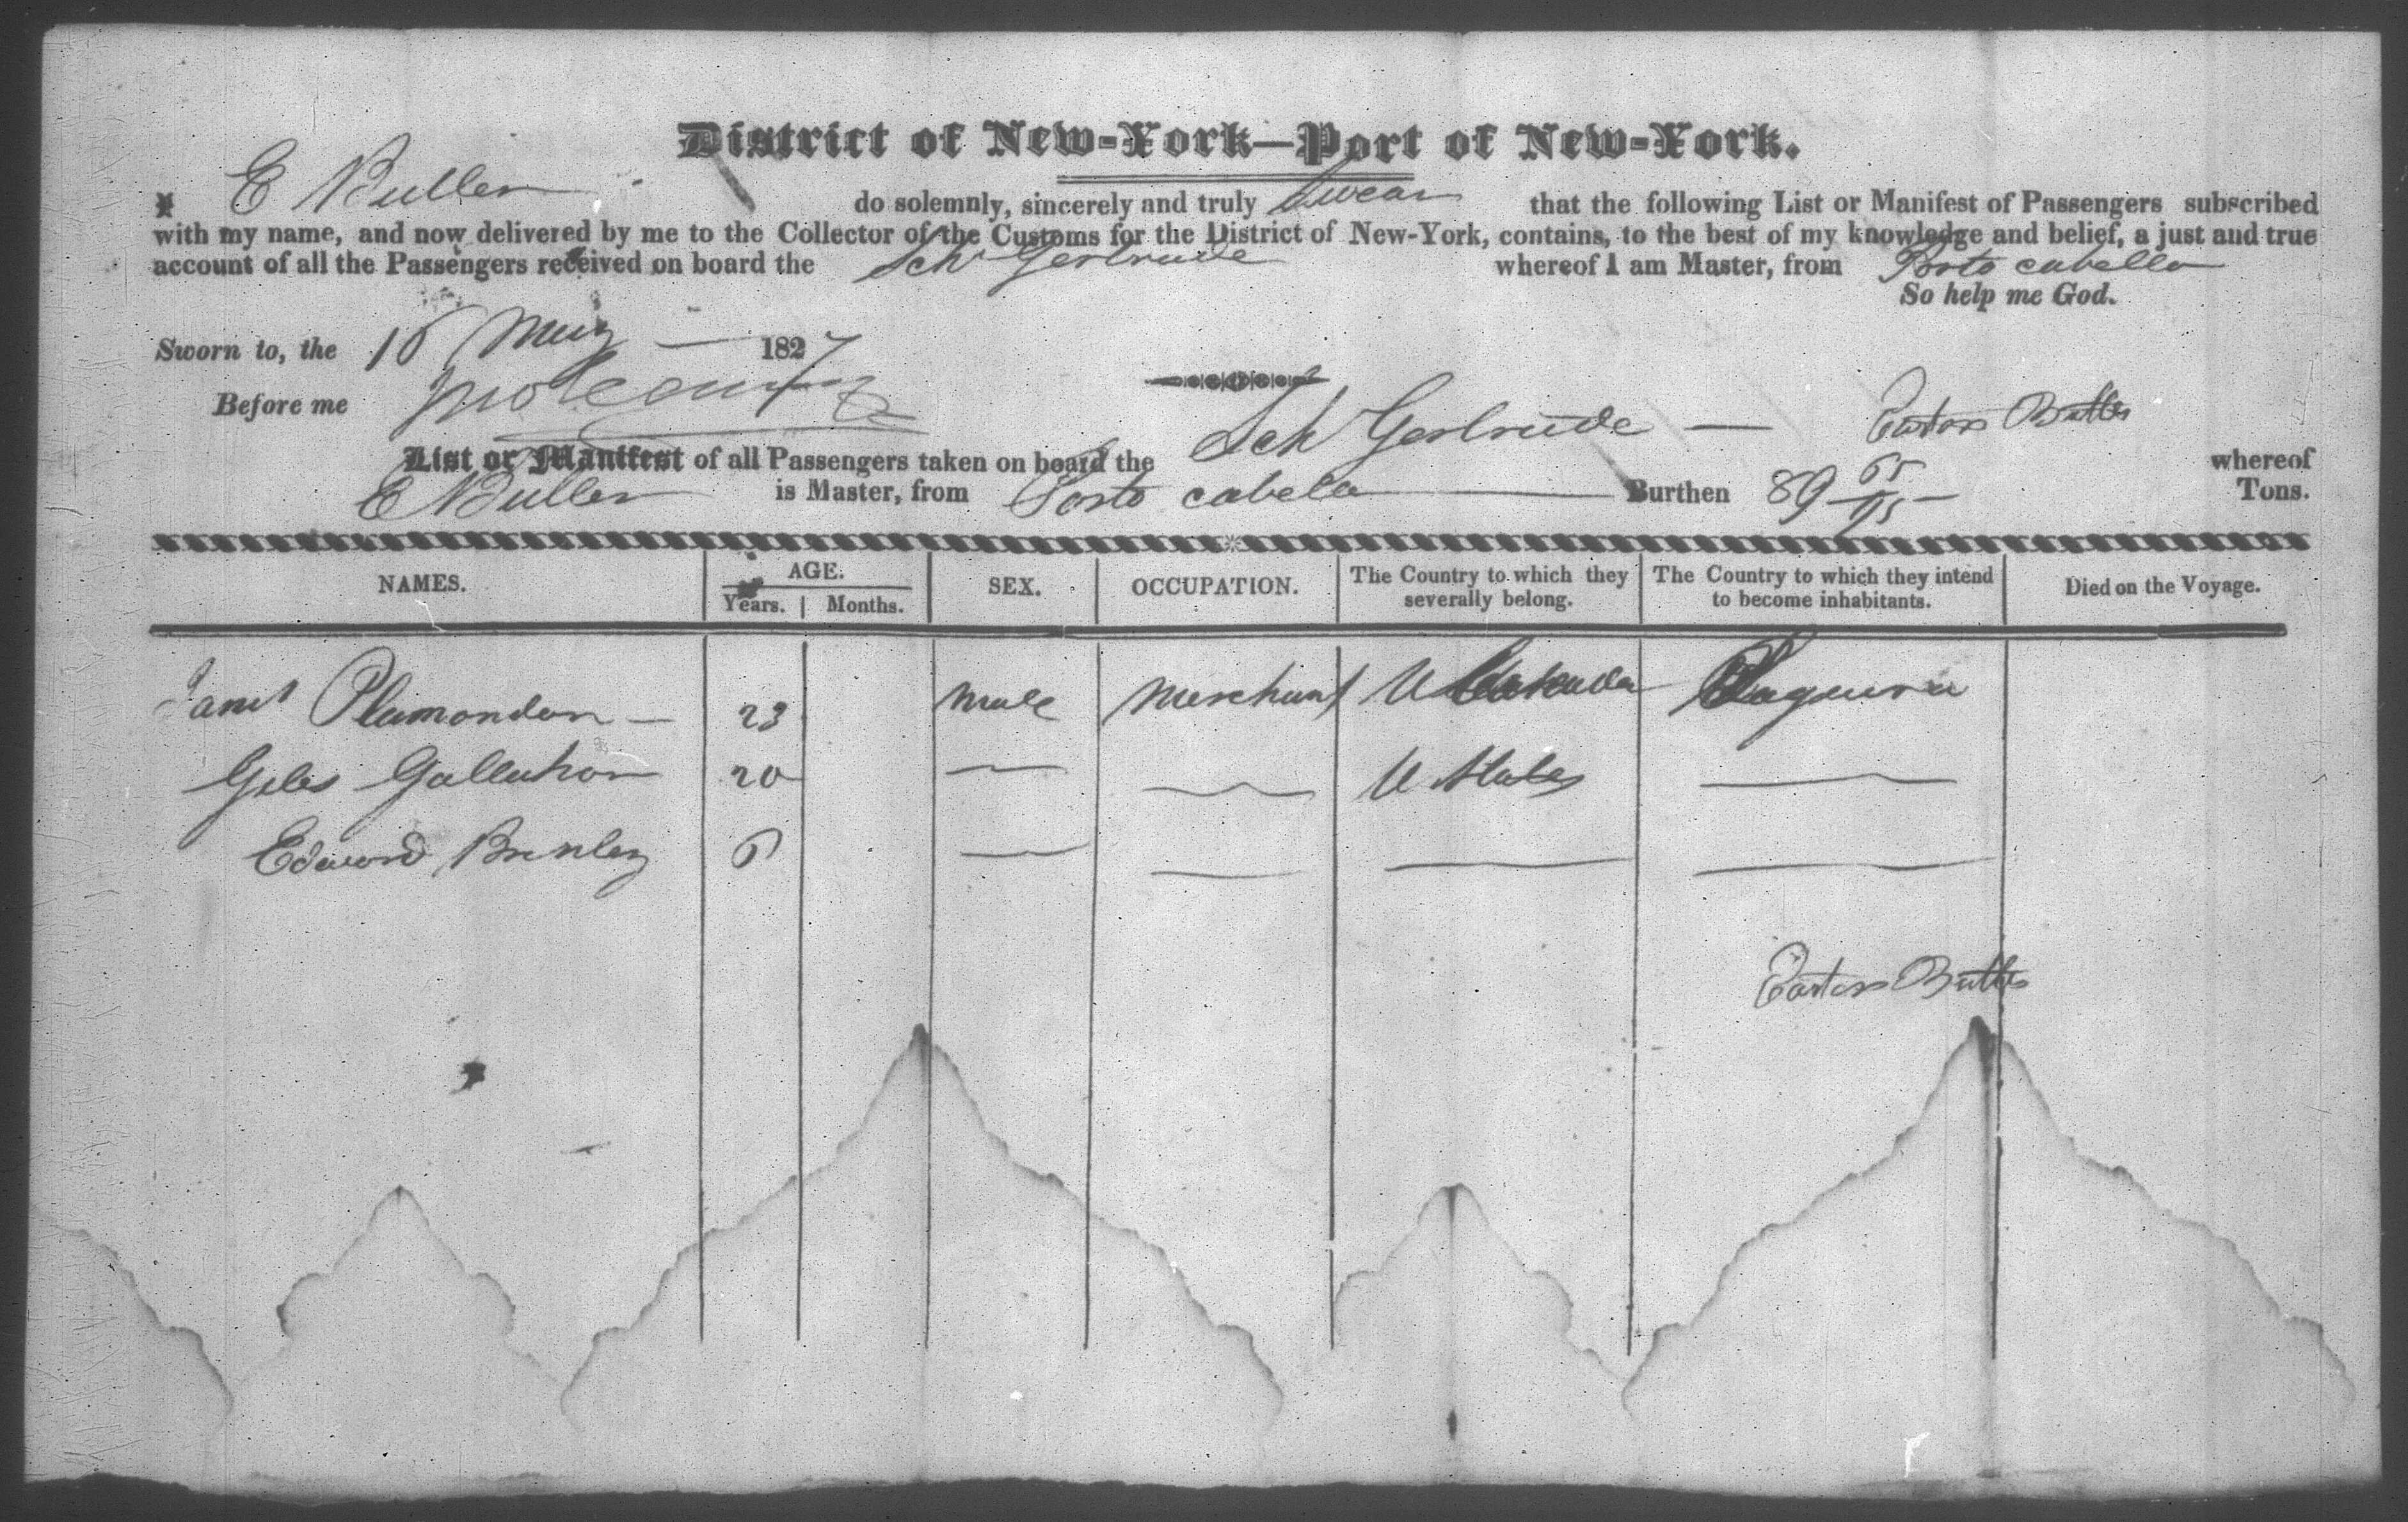 District of New-York—Port of New-York.
I E Butler do solemnly, sincerely and truly swear that the following List or Manifest of Passengers subscribed
with my name, and now delivered by me to the Collector of the Customs for the District of New-York, contains, to the best of my knowledge and belief, a just and true
account of all the Passengers received on board the Schr Gertrude whereof I am Master, from Porto cabello
So help me God.
Sworn to, the 16 May 1827
Before me
Easton Butler
List or Manifest of all Passengers taken on board the Sch Gertrude — whereof
E Butler is Master, from Porto cabello Burthen 89 65/95 Tons.
NAMES. AGE. SEX. OCCUPATION. The Country to which they severally belong. The Country to which they intend to become inhabitants. Died on the Voyage.
Years. Months.
Plamondon — 23 Male Merchant Laguira
Giles Gallahon 20 — — U States —
Edward Brinley 6 — — — —
Easton Butler